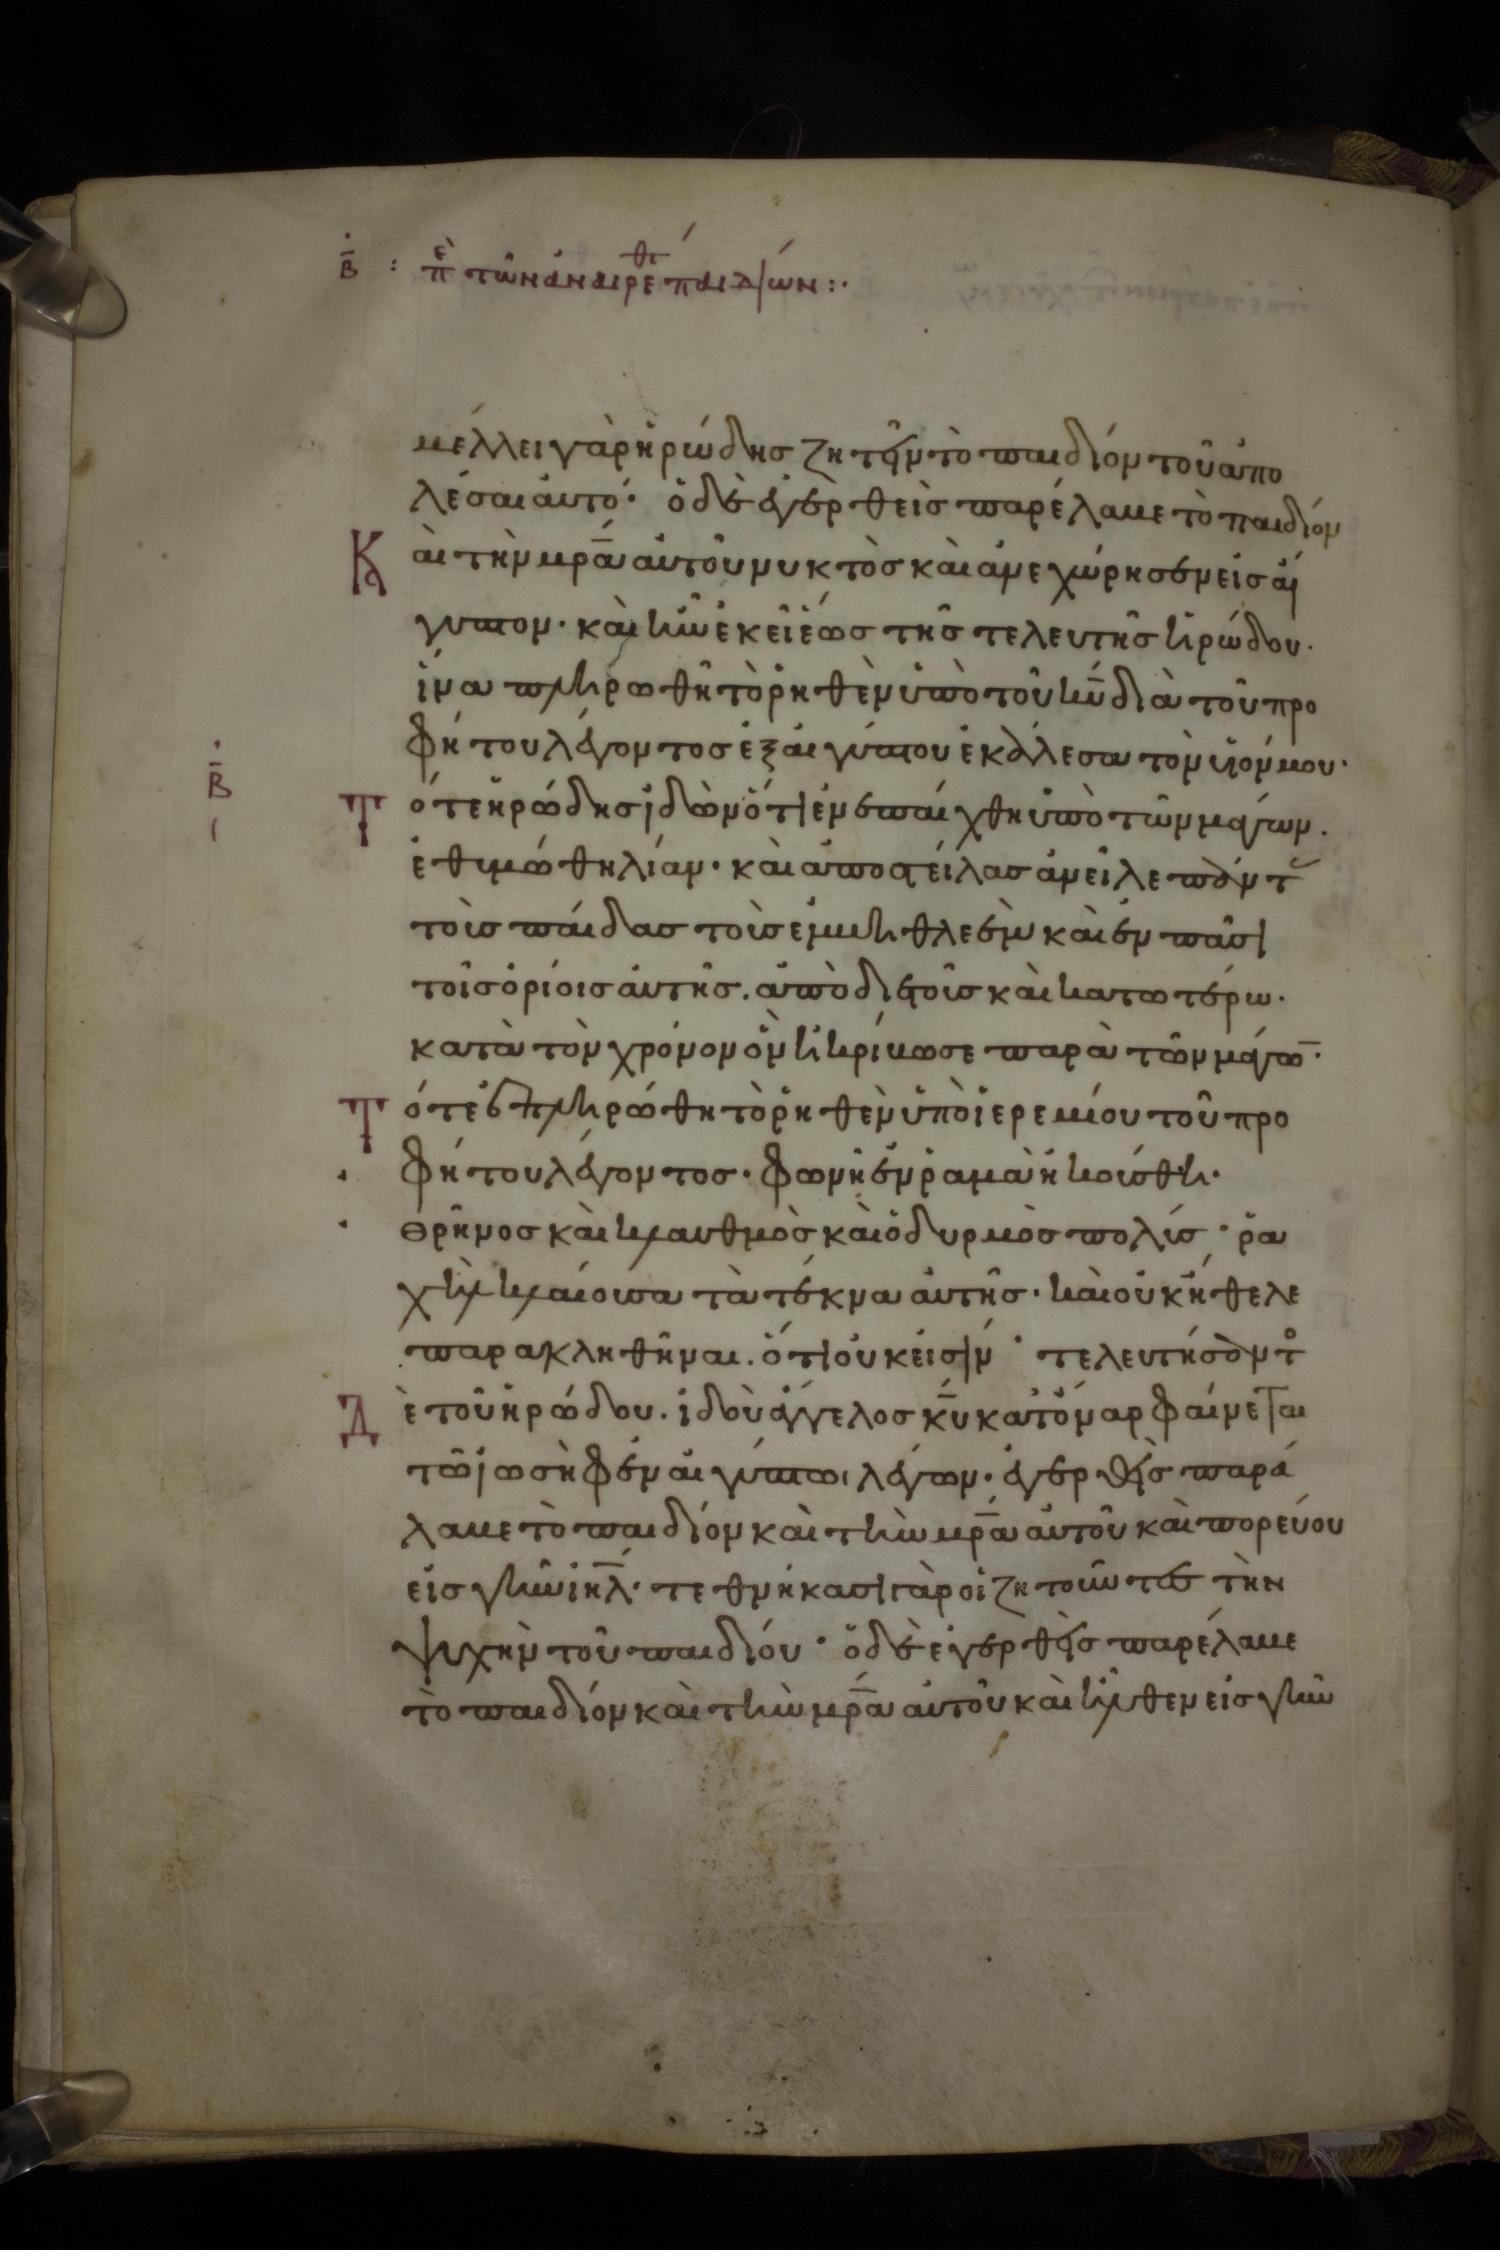 Β : πε τῶν ἀναιρεθέ παιδίων :·
μέλλει γὰρ ἡρώδησ ζητεῖν τὸ παιδίον τοῦ ἀπο
λέσαι αὐτό· ὁ δὲ ἐγερθεὶσ παρέλαβε τὸ παιδίον
Καὶ τὴν μρ̅α αὐτοῦ νυκτὸσ καὶ ἀνεχώρησεν εἰσ αἴ
γυπτον· καὶ ἦν ἐκεῖ ἕωσ τῆσ τελευτῆσ ἡρώδου·
ἵνα πληρωθῆ τὸ ῥηθὲν ὑπὸ τοῦ κ̅υ διὰ τοῦ προ
φήτου λέγοντοσ ἐξ αἰγύπτου ἐκάλεσα τὸν υἱόν μου·
Β
Τότε ἡρώδησ ἰδὼν ὅτι ἐνεπαίχθη ὑπὸ τῶν μάγων.
ἐθυμώθη λίαν· καὶ ἀποστείλασ ἀνεῖλε πάντ
τοὺσ παῖδασ τοὺσ ἐν βηθλεὲμ καὶ ἐν πᾶσι
τοῖσ ὁρίοισ αὐτῆσ. ἀπὸ διετοῦσ καὶ κατωτέρω·
κατὰ τὸν χρόνον ὃν ἠκρίβωσε παρὰ τῶν μάγω̅·
Τότε ἐπληρώθη τὸ ῥηθὲν ὑπὸ ἱερεμίου τοῦ προ
φήτου λέγοντοσ· φωνὴ ἐν ῥαμὰ ἠκούσθη·
θρῆνοσ καὶ κλαυθμὸσ καὶ ὀδυρμὸσ πολύσ· ῥα
χὴλ κλαίουσα τὰ τέκνα αὐτῆσ· καὶ οὐκ ἤθελε
παρακληθῆναι. ὅτι οὐκ εἰσίν· τελευτήσαντο
Δὲ τοῦ ἡρώδου. ἰδοὺ ἄγγελοσ κ̅υ κατ ὄναρ φαίνεται
τῶ ἰωσὴφ ἐν αἰγύπτωι λέγων· ἐγερθεὶσ παρά
λαβε τὸ παιδίον καὶ τὴν μρ̅α αὐτοῦ καὶ πορεύου
εἰσ γῆν ἰη̅λ· τεθνήκασι γὰρ οἱ ζητοῦντεσ τὴν
ψυχὴν τοῦ παιδίου· ὁ δὲ ἐγερθεὶσ παρέλαβε
τὸ παιδίον καὶ τὴν μρ̅α αὐτοῦ καὶ ἦλθεν εἰσ γῆν